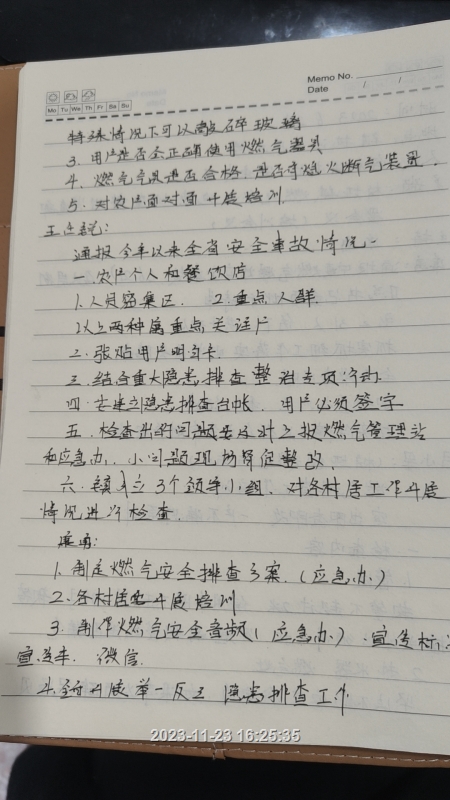 Memo No.
Mo Tu We Th Fr Sa Su
Date / /
特殊情况下可以敲碎玻璃
3、用户是否会正确使用燃气器具
4、燃气气具是否合格、是否有熄火断气装置.
5、对农户面对面开展培训.
通报今年以来全省安全事故情况.
一、农户个人和餐饮店
1.人员密集区. 2.重点人群
以上两种属重点关注户
二、张贴用户明白卡.
三、结合重大隐患排查整治专项行动
四、要建立隐患排查台帐、用户必须签字
五、检查出的问题要及时上报燃气管理站
和应急办、小问题现场督促整改.
六、镇成立3个领导小组、对各村居工作开展
情况进行检查.
1、制定燃气安全排查方案.(应急办)
2、各村居开展培训
3、制作燃气安全音频(应急办)、宣传标
宣传车、微信.
4、开展举一反三隐患排查工作
2023-11-23 16:25:35